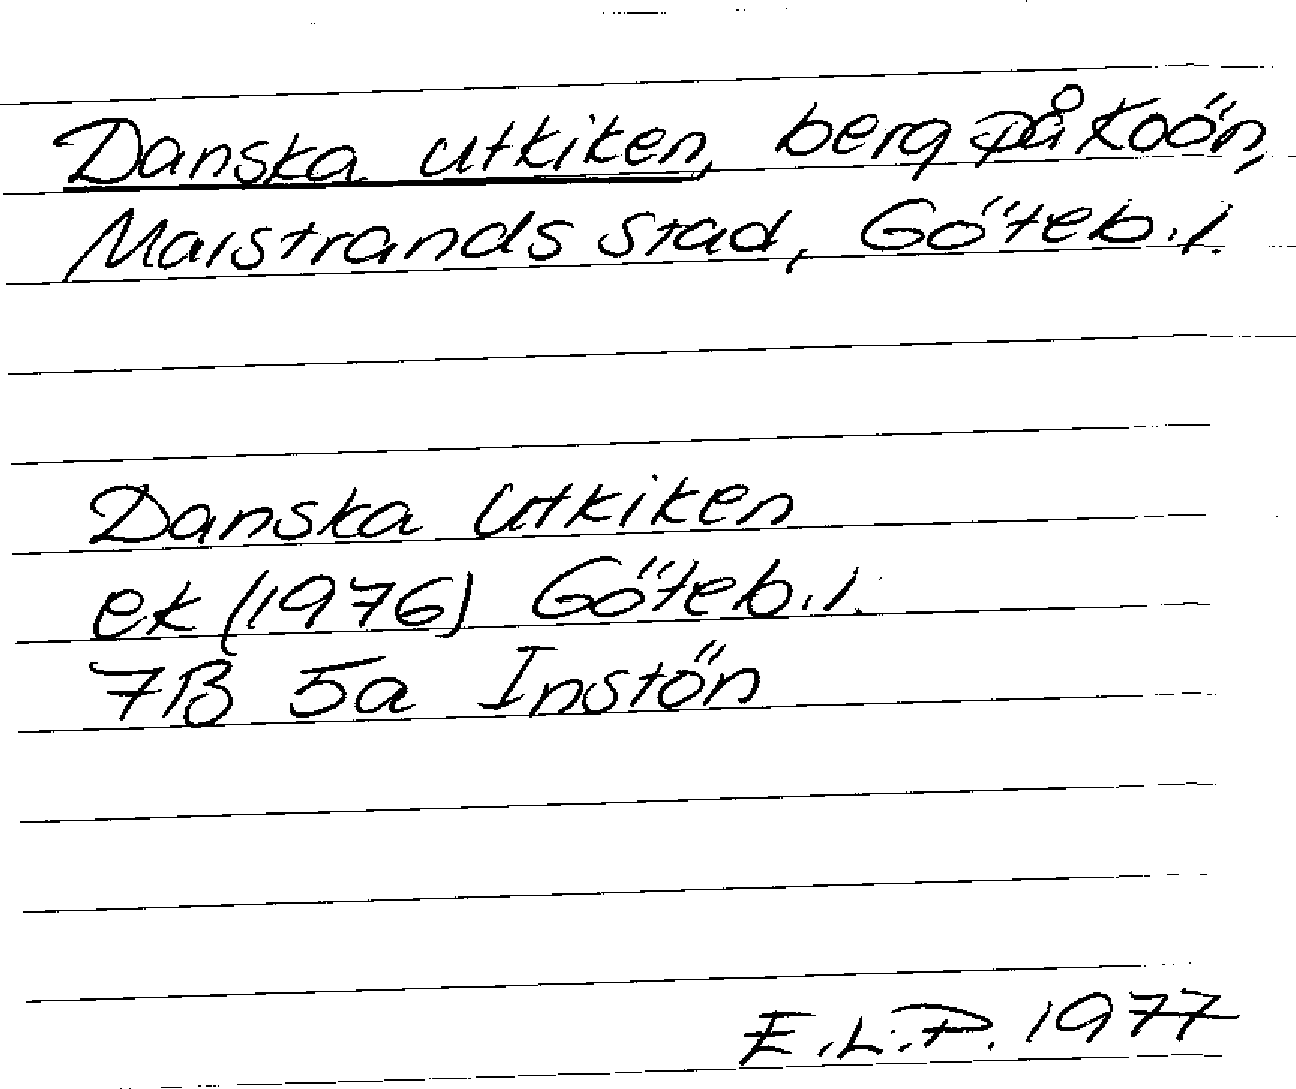 Danska utkiken, berg på Koön,
Marstrands stad, Göteb. l.
Danska Utkiken
ek (1976) Göteb. l.
7B 5a Instön
E. L. P. 1977